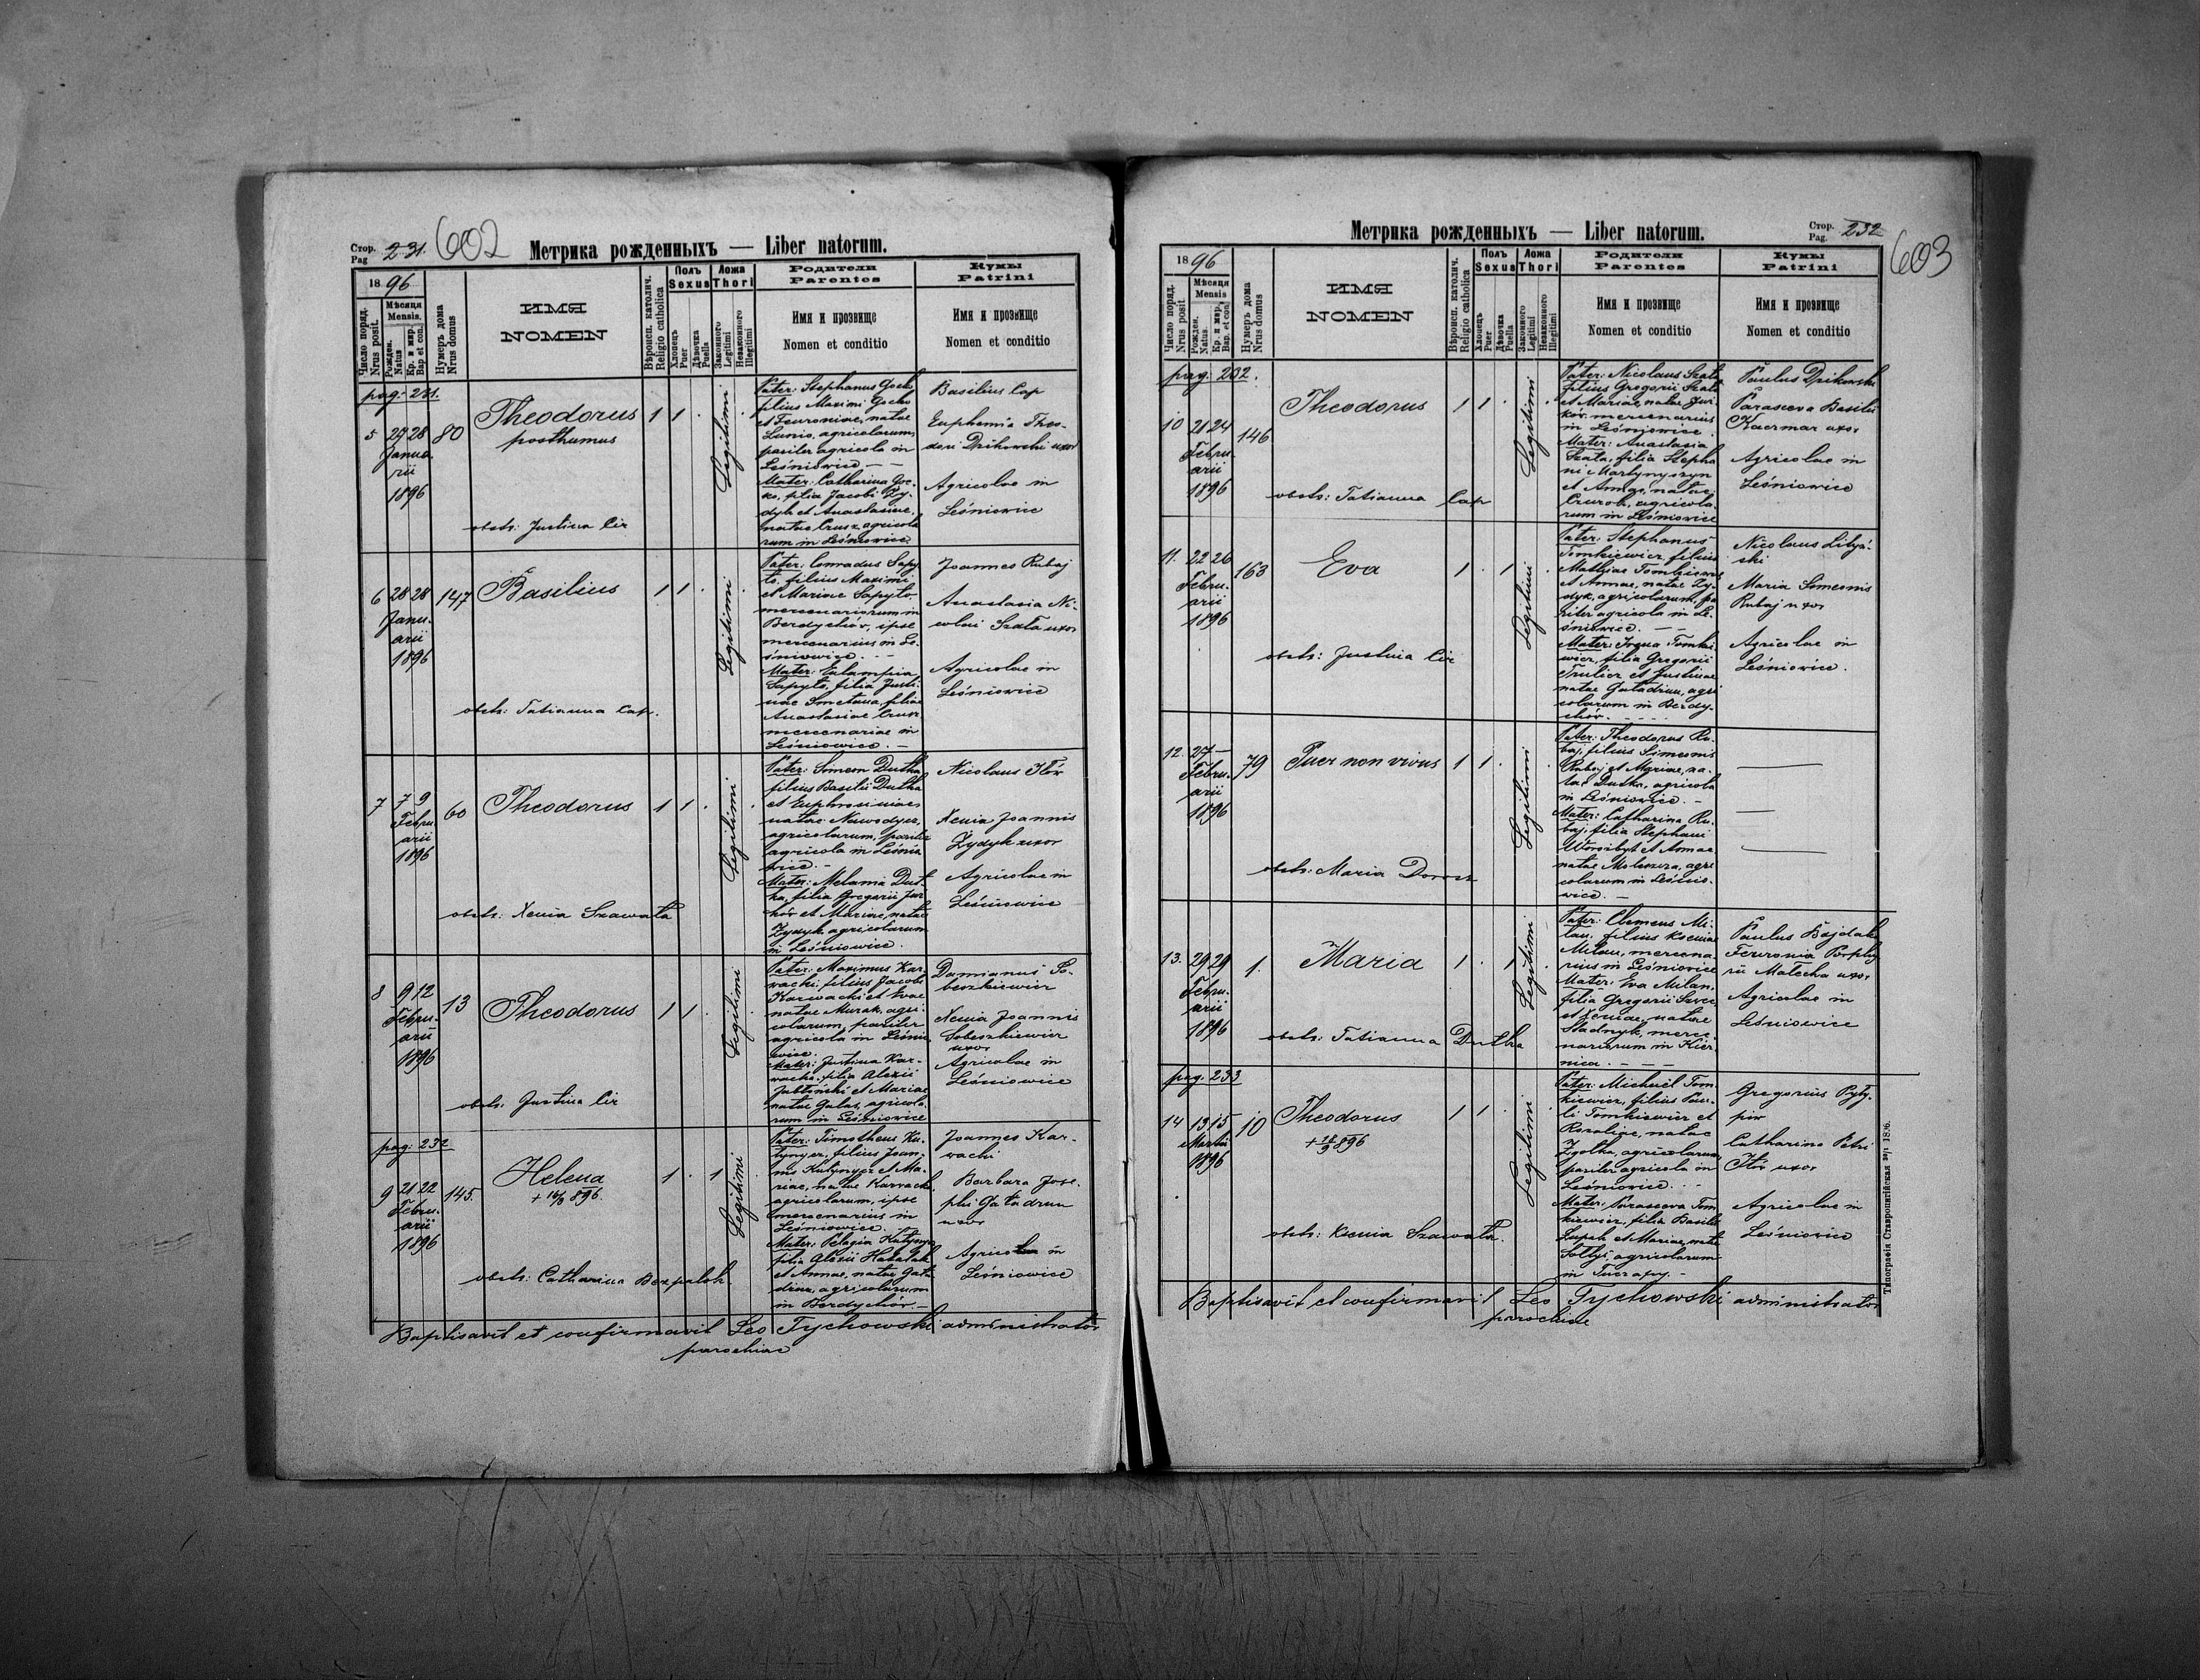 Стор. Pag 231. 602
Метрика рожденныхъ — Liber natorum.
1896
Число поряд. Nrus posit.
Мѣсяця Mensis.
Рожден. Natus
Кр. и мир. Bap. et con.
Нумеръ дома Nrus domus
ИМЯ
NOMEN
Вѣроисп. католич. Religio catholica
Полъ Sexus
Хлопецъ Puer
Дѣвочка Puella
Ложа Thori
Законного Legitimi
Незаконного Illegitimi
Родители
Parentes
Имя и прозвище
Nomen et conditio
Кумы
Patrini
Имя и прозвище
Nomen et conditio
pag. 231.
5 27 28 80
Januarii
1896
Theodorus
posthumus
1 1 .
Legitimi
obstr: Justina Cir
Pater: Stephanus Gocko,
filius Maximi Gocko
et Feuroniae, natae
Lunio, agricolarum,
pariter agricola in
Leśniowice — —
Mater: Catharina Goc-
ko, filia Jacobi Zy-
dyk et Anastasiae,
natae Crusz agricola
rum in Leśniowice
Basilius Cap
Euphemia Theo-
dori Dzikowski uxor
Agricolae in
Leśniowice
6 28 28 147
Janu-
arii
1896
Basilius
1 1 .
Legitimi
obstr: Tatianna Cap.
Pater: Conradus Sapy
to, filius Maximi
et Mariae Sapyto
mercenariorum in
Berdychów, ipse
mercenarius in Le-
śniowice. - -
Mater: Eulampia
Sapyto, filia Justi-
nae Smetana, filiae
Anastasiae Crusz
mercenariae in
Leśniowice. —
Joannes Rubaj
Anastasia Ni-
colai Szala uxor
Agricolae in
Leśniowice
7 7 9 60
Febru-
arii
1896
Theodorus
1 1 .
Legitimi
obstr: Xenia Szawała
Pater: Simeon Dutka
filius Basilii Dutka
et Euphrosiniae,
natae Nawodycz,
agricolarum, pariter
agricola in Leśnio
wice. -
Mater: Melania Dut-
ka, filia Gregorii Jur
ków et Mariae, natae
Zydyk agricolarum
in Leśniowice.
Nicolaus Kłór
Xenia Joannis
Zydyk uxor
Agricolae in
Leśniowice
8 9 12 13
Febru-
arii
1896
Theodorus
1 1 .
Legitimi
obstr: Justina Cir
Pater: Maximus Kar-
wacki, filius Jacobi
Karwacki et Evae
natae Murak, agri-
colarum, pariter
agricola in Leśnio
wice.
Mater: Justina Kar-
wacki, filia Alexii
Jabłoński et Mariae
natae Galas, agricola
rum in Leśniowice
Damianus So-
beszkiewicz
Xenia Joannis
Sobeszkiewicz
uxor
Agricolae in
Leśniowice
pag: 232
9 21 22 145.
Febru-
arii
1896
Helena
+ 16/3 896.
1 . 1
Legitimi
obstr: Catharina Bezpalok
Pater: Timotheus Ku-
tynycz, filius Joan-
nis Kutynycz et Ma-
riae, natae Karwacki,
agricolarum, ipse
mercenarius in
Leśniowice. —
Mater: Pelagia Kutynycz
filia Alexii Hałałak
et Annae, natae Gała
drun, agricolarum
in Berdychów. —
Joannes Kar-
wacki
Barbara Jose-
phi Gaładrun
uxor
Agricolae in
Leśniowice
Baptisavit et confirmavit Leo Tychowski administrator
parochiae
Метрика рожденныхъ — Liber natorum.
Стор. Pag. 232 603
1896
Число поряд. Nrus posit.
Мѣсяця Mensis
Рожден. Natus.
Кр. и мир. Bap. et con.
Нумеръ дома Nrus domus
ИМЯ
NOMEN
Вѣроисп. католич. Religio catholica
Полъ Sexus
Хлопецъ Puer
Дѣвочка Puella
Ложа Thori
Законного Legitimi
Незаконного Illegitimi
Родители
Parentes
Имя и прозвище
Nomen et conditio
Кумы
Patrini
Имя и прозвище
Nomen et conditio
pag: 232.
10 21 24 146
Febru-
arii
1896
Theodorus
1 1 .
Legitimi
obstr: Tatianna Cap
Pater: Nicolaus Szala
filius Gregorii Szala
et Mariae, natae Jur-
ków, mercenarius
in Leśniowice.
Mater: Anastasia
Szala, filia Stepha
ni Martynyszyn
et Annae, natae
Czurok, agricola
rum in Leśniowice
Paulus Dzikowski
Parasceva Basilii
Kaczmar uxor
Agricolae in
Leśniowice
11. 22 26 163
Febru-
arii
1896
Eva
1 . 1
Legitimi
obstr: Justina Cir
Pater: Stephanus
Tomkiewicz, filius
Mathiae Tomkiewicz
et Annae, natae Zy-
dyk, agricolarum, pa
riter agricola in Le-
śniowice. — —
Mater: Irena Tomki
ewicz, filia Gregorii
Trulicz et Justinae
natae Gaładrun, agri
colarum in Berdy-
chów. - - - -
Nicolaus Libyń-
ski
Maria Simeonis
Rubaj uxor
Agricolae in
Leśniowice.
12. 27 — 79
Febru-
arii
1896
Puer non vivus
1 1 .
Legitimi
obstr: Maria Dorosz
Pater: Theodorus Ru-
baj, filius Simeonis
Rubaj et Mariae, na-
tae Dutka, agricola
in Leśniowice. -
Mater: Catharina Ru-
baj, filia Stephani
Worobyt et Annae
natae Mokrzcza, agri
colarum in Leśnio-
wice. —
13. 29 29 1.
Febru-
arii
1896
Maria
1 . 1
Legitimi
obstr: Tatianna Dutka
Pater: Clemens Mi-
lan, filius Kseniae
Milan, mercena
rius in Leśniowice
Mater: Eva Milan,
filia Gregorii Szwec
et Xeniae, natae
Stadnyk, merce
nariarum in Kier-
nica. — — —
Paulus Bajdała
Feuronia Porphy
rii Matecha uxor
Agricolae in
Leśniowice
pag. 233
14 13 15 10
Martii
1896
Theodorus
1 1 .
Legitimi
obstr: Ksenia Szawała.
Pater: Michaël Tom-
kiewicz, filius Pau-
li Tomkiewicz et
Rozaliae, natae
Zgolka, agricolarum,
pariter agricola in
Leśniowice. - -
Mater: Parasceva Tom
kiewicz, filia Basilii
Łupak et Mariae, natae
Soltys, agricolarum
in Tuczapy. -
Gregorius Pyły-
piw
Catharina Petri
Kłór uxor
Agricolae in
Leśniowice
Baptisavit et confirmavit Leo Tychowski administrator
parochiae
Типографія Ставропигійская